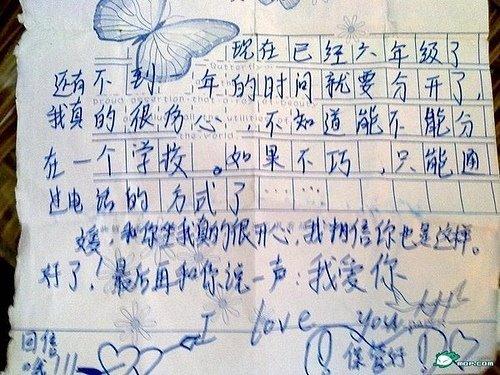 现在已经六年级了
还有不到 年的时间就要分开了,
我真的很伤心,不知道能不能分
在一个学校。如果不巧,只能通
过电话的方式了……
和你坐我真的很开心,我相信你也是这样。
对了!最后再和你说一声:我爱你
I love you
回信
哦!!!
保管好!
MOP.COM